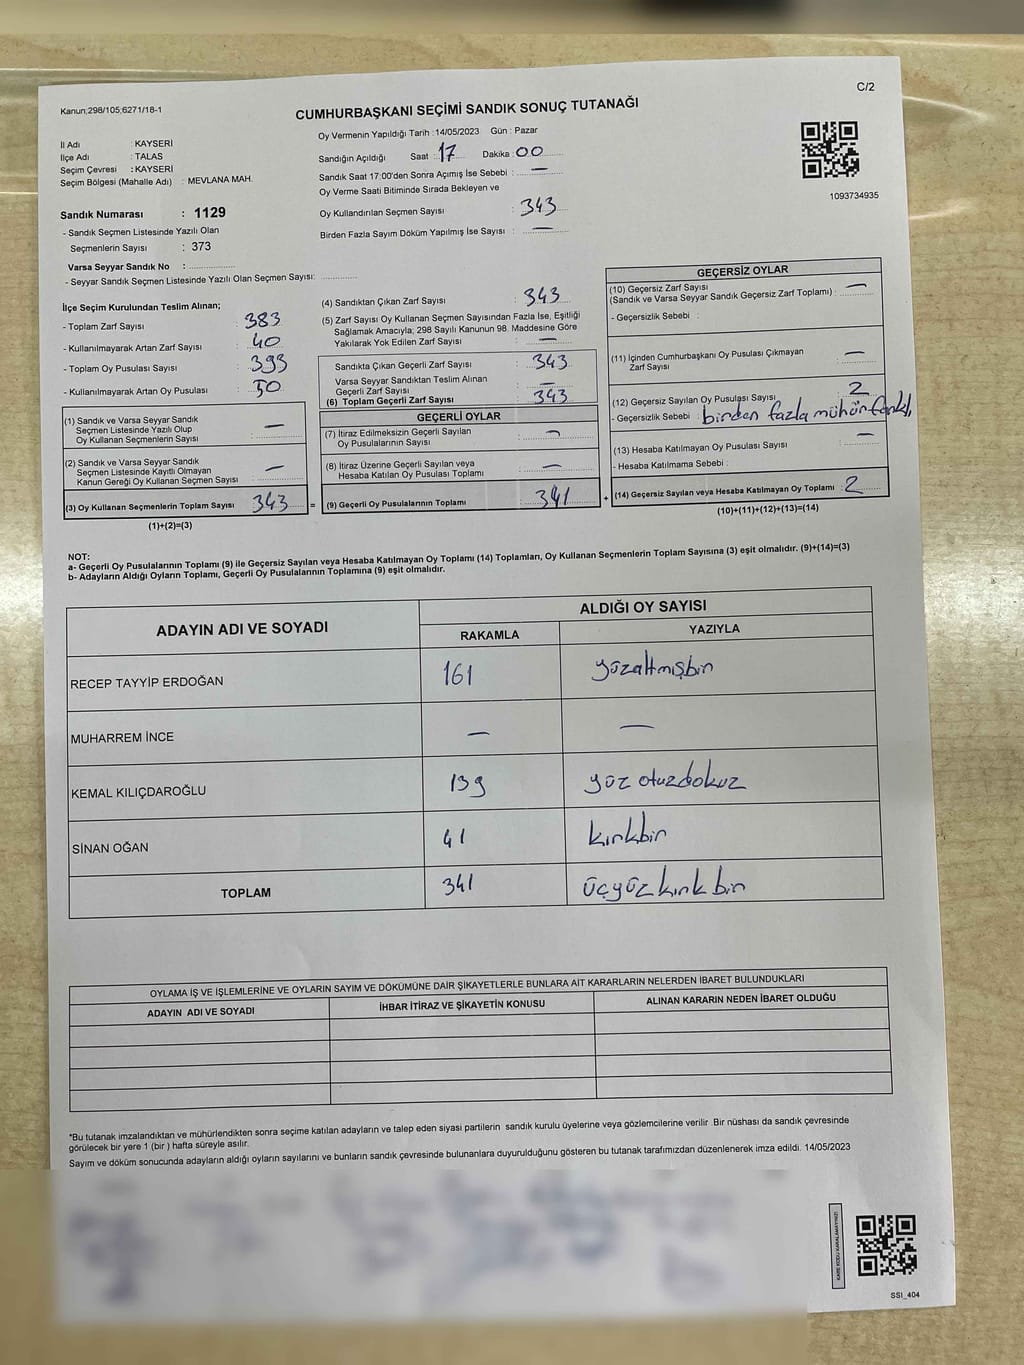 C/2
Kanun;298/105;6271/18-1
CUMHURBAŞKANI SEÇİMİ SANDIK SONUÇ TUTANAĞI
İl Adı : KAYSERİ
İlçe Adı : TALAS
Seçim Çevresi : KAYSERİ
Seçim Bölgesi (Mahalle Adı) : MEVLANA MAH.
Sandık Numarası : 1129
- Sandık Seçmen Listesinde Yazılı Olan
Seçmenlerin Sayısı : 373
Varsa Seyyar Sandık No :
- Seyyar Sandık Seçmen Listesinde Yazılı Olan Seçmen Sayısı:
Oy Vermenin Yapıldığı Tarih :14/05/2023 Gün : Pazar
Sandığın Açıldığı Saat : 17 Dakika : 00
Sandık Saat 17:00'den Sonra Açımış İse Sebebi : —
Oy Verme Saati Bitiminde Sırada Bekleyen ve
Oy Kullandırılan Seçmen Sayısı : 343
Birden Fazla Sayım Döküm Yapılmış İse Sayısı : —
1093734935
İlçe Seçim Kurulundan Teslim Alınan;
- Toplam Zarf Sayısı : 383
- Kullanılmayarak Artan Zarf Sayısı : 40
- Toplam Oy Pusulası Sayısı : 393
- Kullanılmayarak Artan Oy Pusulası : 50
(1) Sandık ve Varsa Seyyar Sandık
Seçmen Listesinde Yazılı Olup
Oy Kullanan Seçmenlerin Sayısı : —
(2) Sandık ve Varsa Seyyar Sandık
Seçmen Listesinde Kayıtlı Olmayan
Kanun Gereği Oy Kullanan Seçmen Sayısı : —
(3) Oy Kullanan Seçmenlerin Toplam Sayısı : 343 =
(1)+(2)=(3)
(4) Sandıktan Çıkan Zarf Sayısı : 343
(5) Zarf Sayısı Oy Kullanan Seçmen Sayısından Fazla İse, Eşitliği
Sağlamak Amacıyla; 298 Sayılı Kanunun 98. Maddesine Göre
Yakılarak Yok Edilen Zarf Sayısı : —
Sandıkta Çıkan Geçerli Zarf Sayısı : 343
Varsa Seyyar Sandıktan Teslim Alınan
Geçerli Zarf Sayısı : —
(6) Toplam Geçerli Zarf Sayısı : 343
GEÇERLİ OYLAR
(7) İtiraz Edilmeksizin Geçerli Sayılan
Oy Pusulalarının Sayısı : —
(8) İtiraz Üzerine Geçerli Sayılan veya
Hesaba Katılan Oy Pusulası Toplamı : —
(9) Geçerli Oy Pusulalarının Toplamı : 341 +
GEÇERSİZ OYLAR
(10) Geçersiz Zarf Sayısı
(Sandık ve Varsa Seyyar Sandık Geçersiz Zarf Toplamı) : —
- Geçersizlik Sebebi :
(11) İçinden Cumhurbaşkanı Oy Pusulası Çıkmayan
Zarf Sayısı : —
(12) Geçersiz Sayılan Oy Pusulası Sayısı : 2
- Geçersizlik Sebebi : birden fazla mühür
(13) Hesaba Katılmayan Oy Pusulası Sayısı : —
- Hesaba Katılmama Sebebi :
(14) Geçersiz Sayılan veya Hesaba Katılmayan Oy Toplamı : 2
(10)+(11)+(12)+(13)=(14)
NOT:
a- Geçerli Oy Pusulalarının Toplamı (9) ile Geçersiz Sayılan veya Hesaba Katılmayan Oy Toplamı (14) Toplamları, Oy Kullanan Seçmenlerin Toplam Sayısına (3) eşit olmalıdır. (9)+(14)=(3)
b- Adayların Aldığı Oyların Toplamı, Geçerli Oy Pusulalarının Toplamına (9) eşit olmalıdır.
ADAYIN ADI VE SOYADI
ALDIĞI OY SAYISI
RAKAMLA YAZIYLA
RECEP TAYYİP ERDOĞAN 161 yüzaltmışbir
MUHARREM İNCE — —
KEMAL KILIÇDAROĞLU 139 yüz otuzdokuz
SİNAN OĞAN 41 kırkbir
TOPLAM 341 üçyüz kırk bir
OYLAMA İŞ VE İŞLEMLERİNE VE OYLARIN SAYIM VE DÖKÜMÜNE DAİR ŞİKAYETLERLE BUNLARA AİT KARARLARIN NELERDEN İBARET BULUNDUKLARI
ADAYIN ADI VE SOYADI İHBAR İTİRAZ VE ŞİKAYETİN KONUSU ALINAN KARARIN NEDEN İBARET OLDUĞU
*Bu tutanak imzalandıktan ve mühürlendikten sonra seçime katılan adayların ve talep eden siyasi partilerin sandık kurulu üyelerine veya gözlemcilerine verilir .Bir nüshası da sandık çevresinde
görülecek bir yere 1 (bir ) hafta süreyle asılır.
Sayım ve döküm sonucunda adayların aldığı oyların sayılarını ve bunların sandık çevresinde bulunanlara duyurulduğunu gösteren bu tutanak tarafımızdan düzenlenerek imza edildi. 14/05/2023
KARE KODU KARALAMAYINIZ!
SSI_404